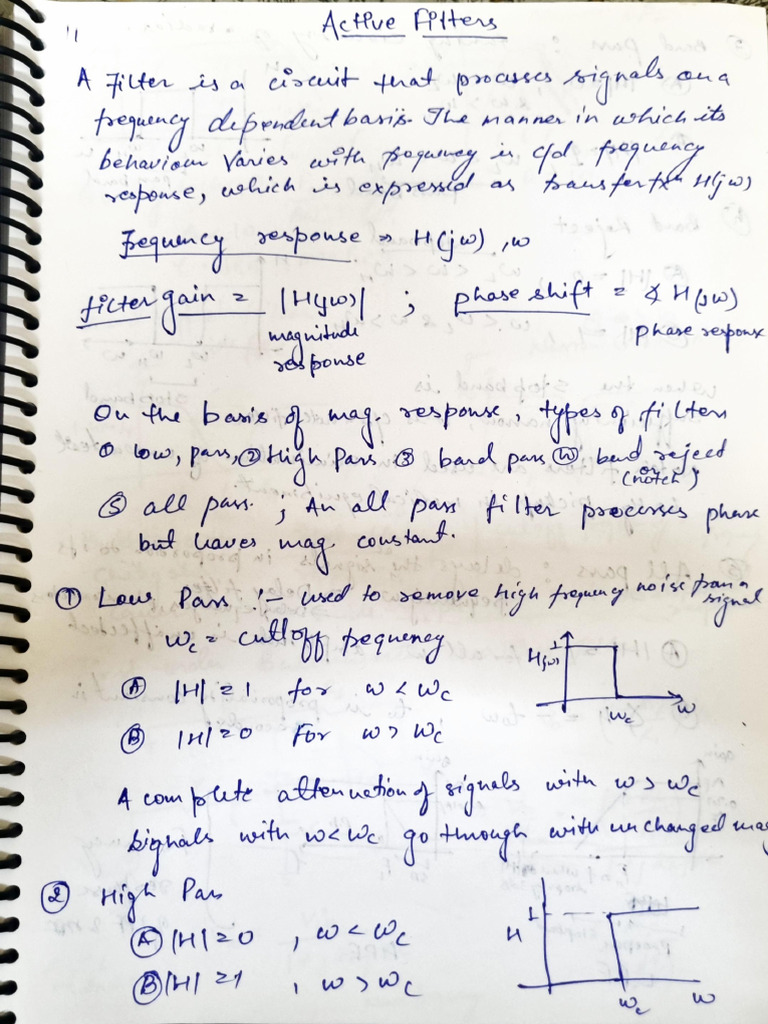 Active Filters
A Filter is a circuit that processes signals on a
frequency dependent basis. The manner in which its
behaviour varies with frequency is c/d frequency
response, which is expressed as transfer fxⁿ H(jω)
Frequency response ⇒ H(jω), ω
filter gain = |H(jω)| ; phase shift = ∡ H(jω)
magnitude response
phase response
On the basis of mag. response, types of filters
① low, pass, ② High Pass ③ band pass ④ band reject
or (notch)
⑤ all pass. ; An all pass filter processes phase
but leaves mag. constant.
① Low Pass :- used to remove high frequency noise from a
signal
ωc = cutoff frequency
H(jω) 1
ωc ω
Ⓐ |H| = 1 for ω < ωc
Ⓑ |H| = 0 For ω > ωc
A complete attenuation of signals with ω > ωc
Signals with ω < ωc go through with unchanged mag
② High Pass
Ⓐ |H| = 0 , ω < ωc
Ⓑ |H| = 1 , ω > ωc
H 1
ωc ω